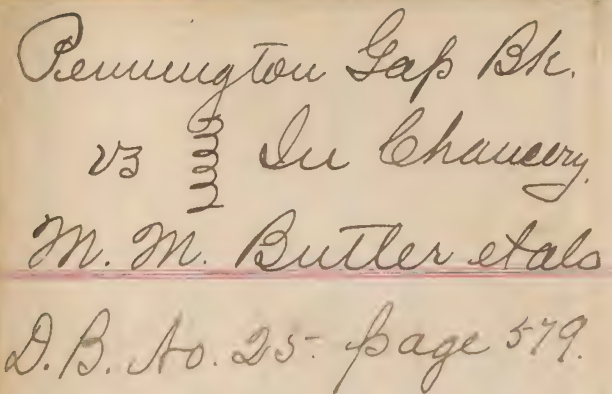 Pennington Gap Bk.
vs In Chancery.
M. M. Butler et als
D. B. No. 25. page 579.